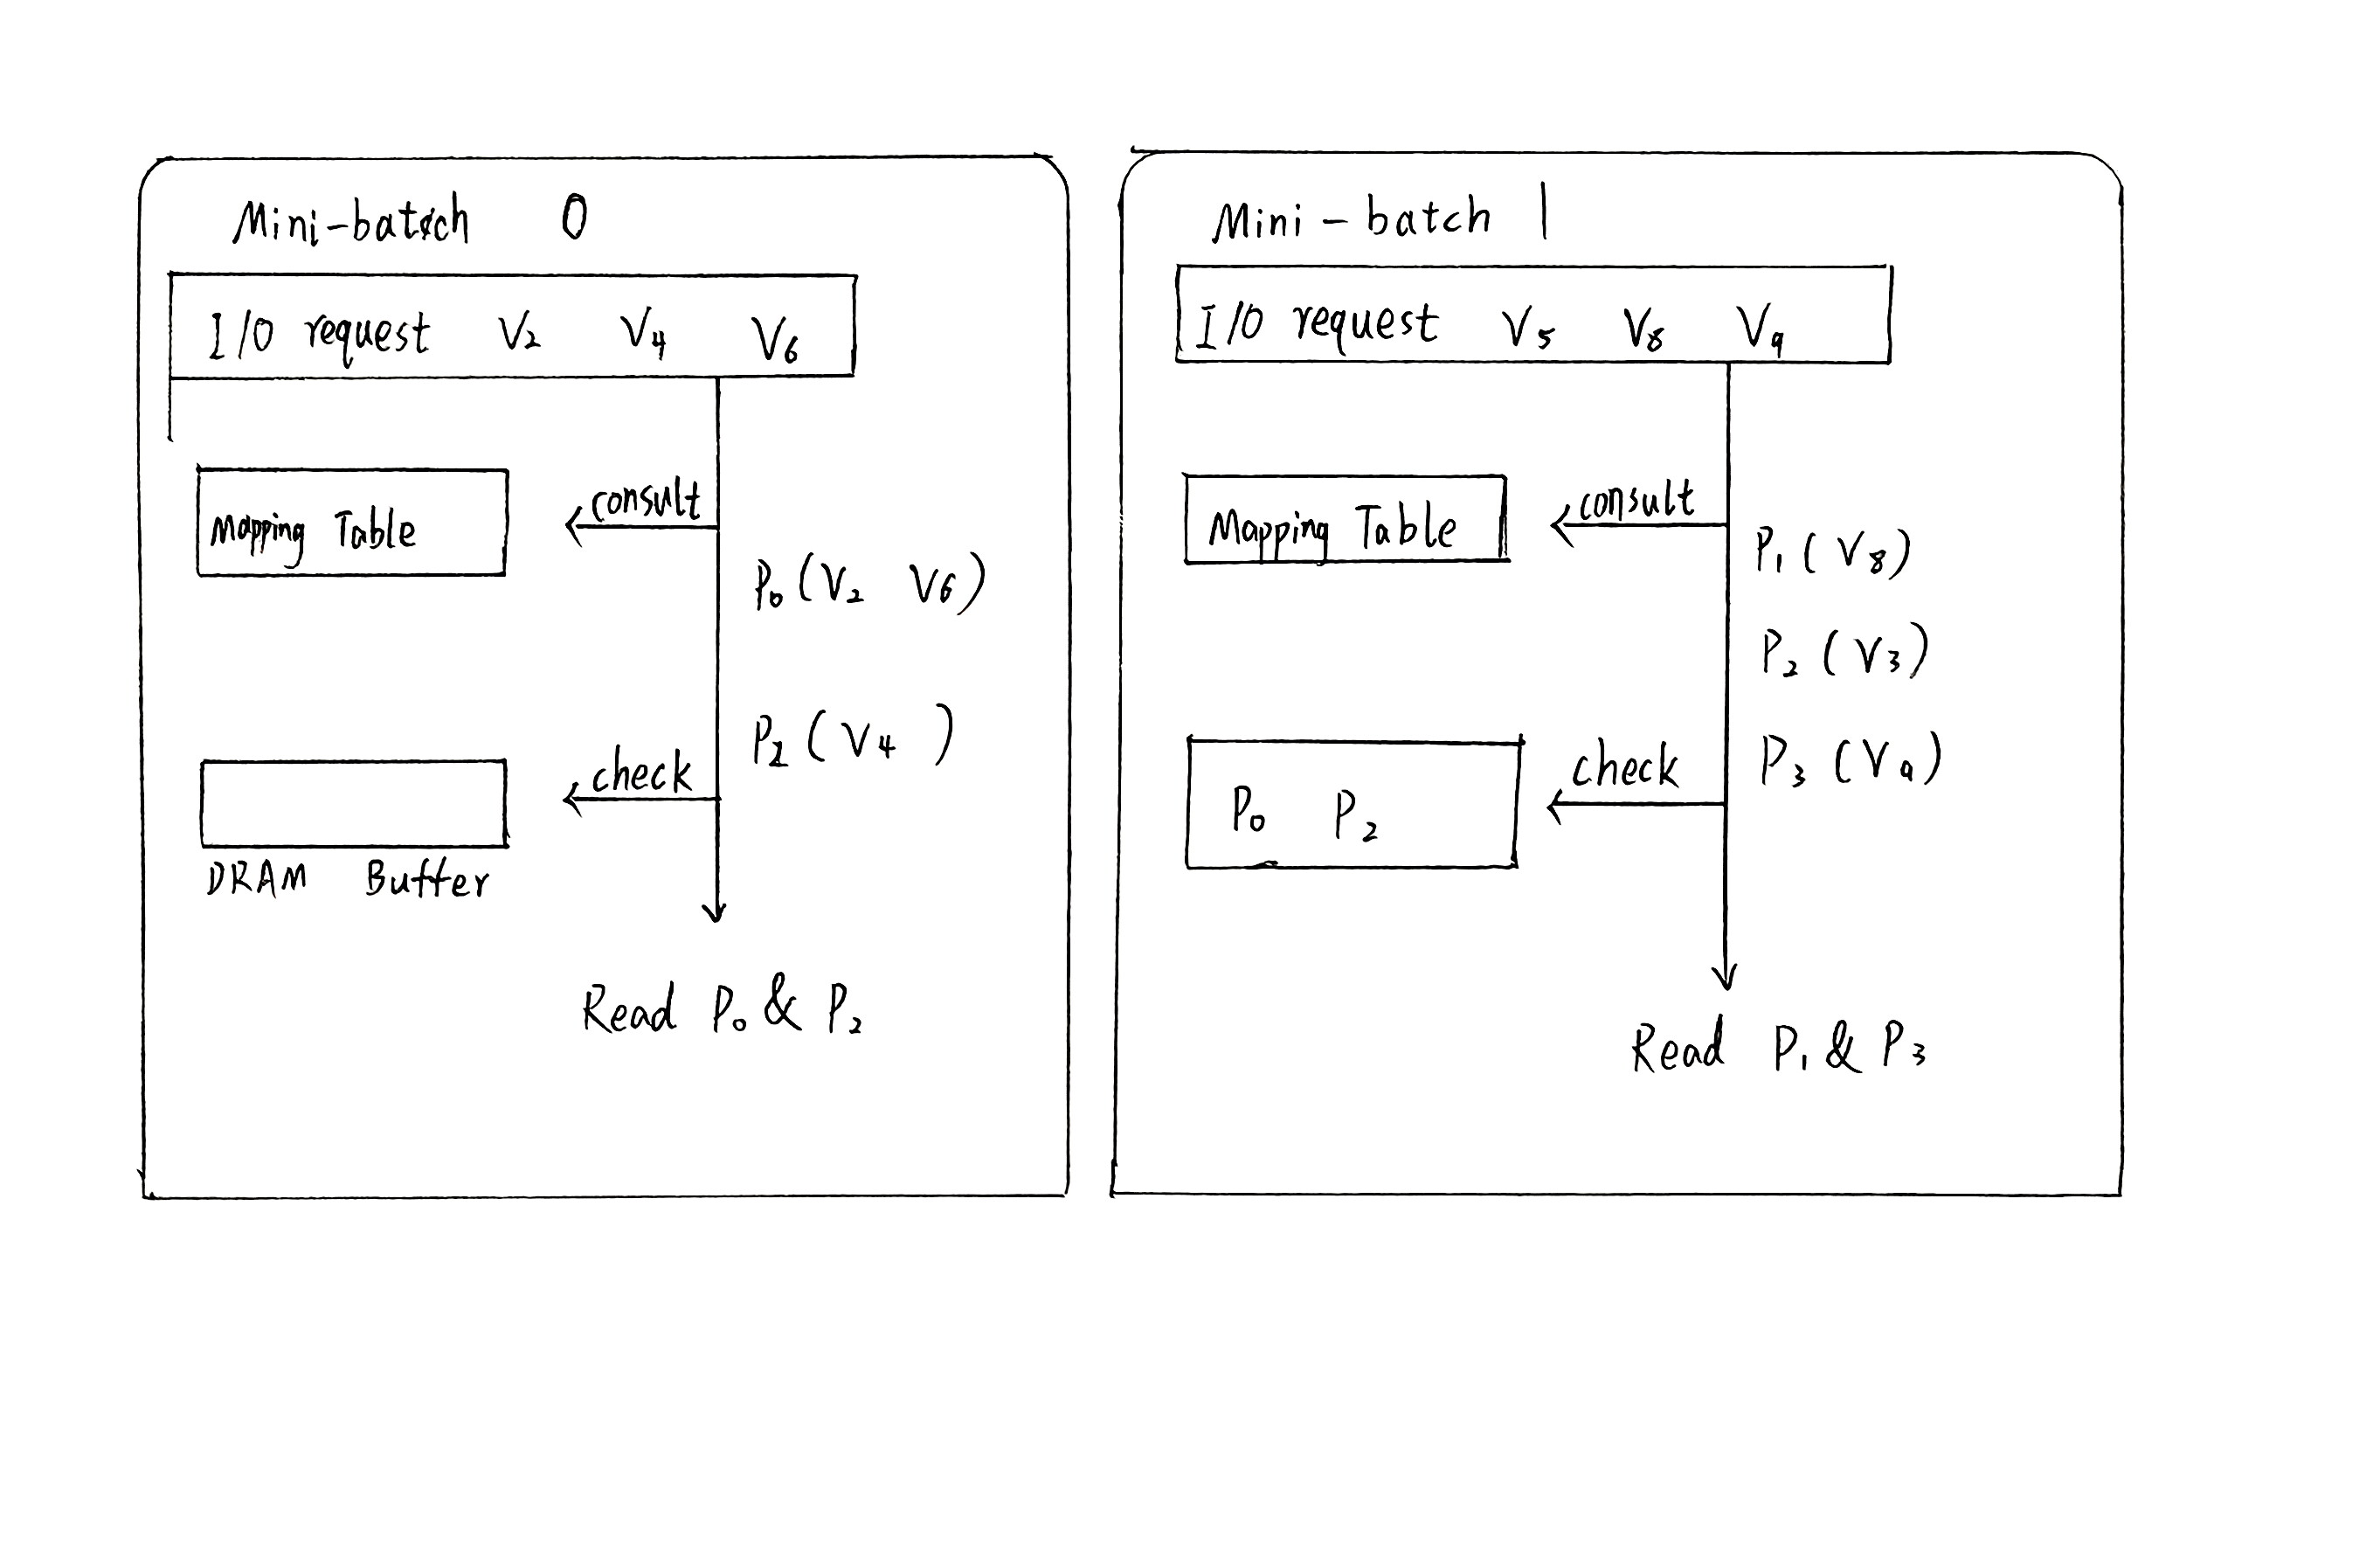 Mini-batch 0
I/O request V2 V4 V6
consult
Mapping Table
P0 (V2 V6)
P2 (V4 )
check
DRAM Buffer
Read P0 & P2
Mini-batch 1
I/O request V5 V8 V9
consult
Mapping Table
P1 (V8)
P2 (V3)
P3 (V9)
check
P0 P2
Read P1 & P3